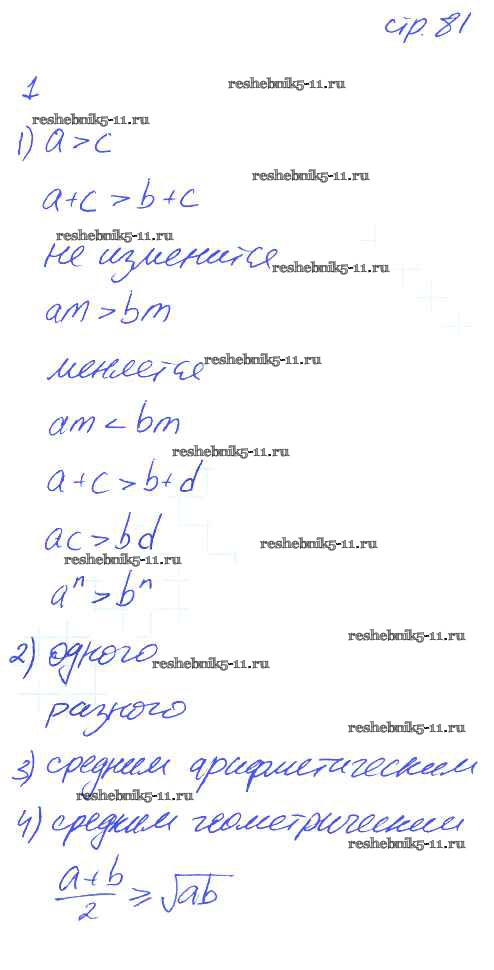 стр. 81
1
reshebnik5-11.ru
reshebnik5-11.ru
1) a > c
reshebnik5-11.ru
a + c > b + c
reshebnik5-11.ru
не изменится
reshebnik5-11.ru
am > bm
меняется
reshebnik5-11.ru
am < bm
reshebnik5-11.ru
a + c > b + d
ac > bd
reshebnik5-11.ru
reshebnik5-11.ru
aⁿ > bⁿ
reshebnik5-11.ru
2) одного
reshebnik5-11.ru
разного
reshebnik5-11.ru
3) средним арифметическим
reshebnik5-11.ru
4) средним геометрическим
reshebnik5-11.ru
(a+b)/2 ≥ √ab